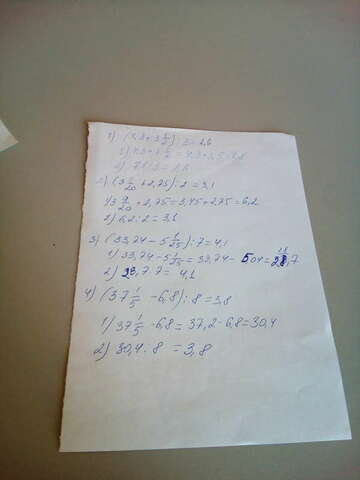 1) (4,3+3 1/2):3=2,6
1) 4,3+3 1/2=4,3+3,5=7,8
2) 7,8:3=2,6
2) (3 9/20+2,75):2=3,1
1) 3 9/20+2,75=3,45+2,75=6,2
2) 6,2:2=3,1
3) (33,74-5 1/25):7=4,1
1) 33,74-5 1/25=33,74-5,04=28,7
2) 28,7:7= 4,1
4) (37 1/5 -6,8):8=3,8
1) 37 1/5 -6,8=37,2-6,8=30,4
2) 30,4:8 =3,8